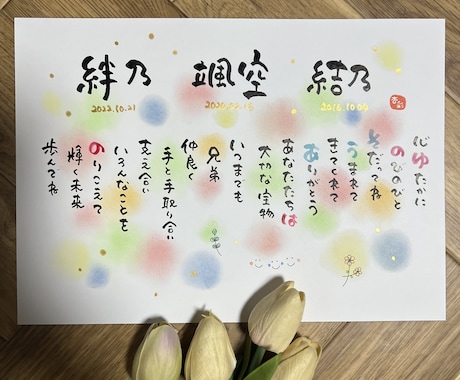 結乃
2016.10.04
颯空
絆乃
2022.10.21
心ゆたかに
のびのびと
そだってね
うまれて
きてくれて
ありがとう
あなたたちは
大切な宝物
いつまでも
兄弟
仲良く
手と手取り合い
支え合い
いろんなことを
のりこえて
輝く未来
歩んでね